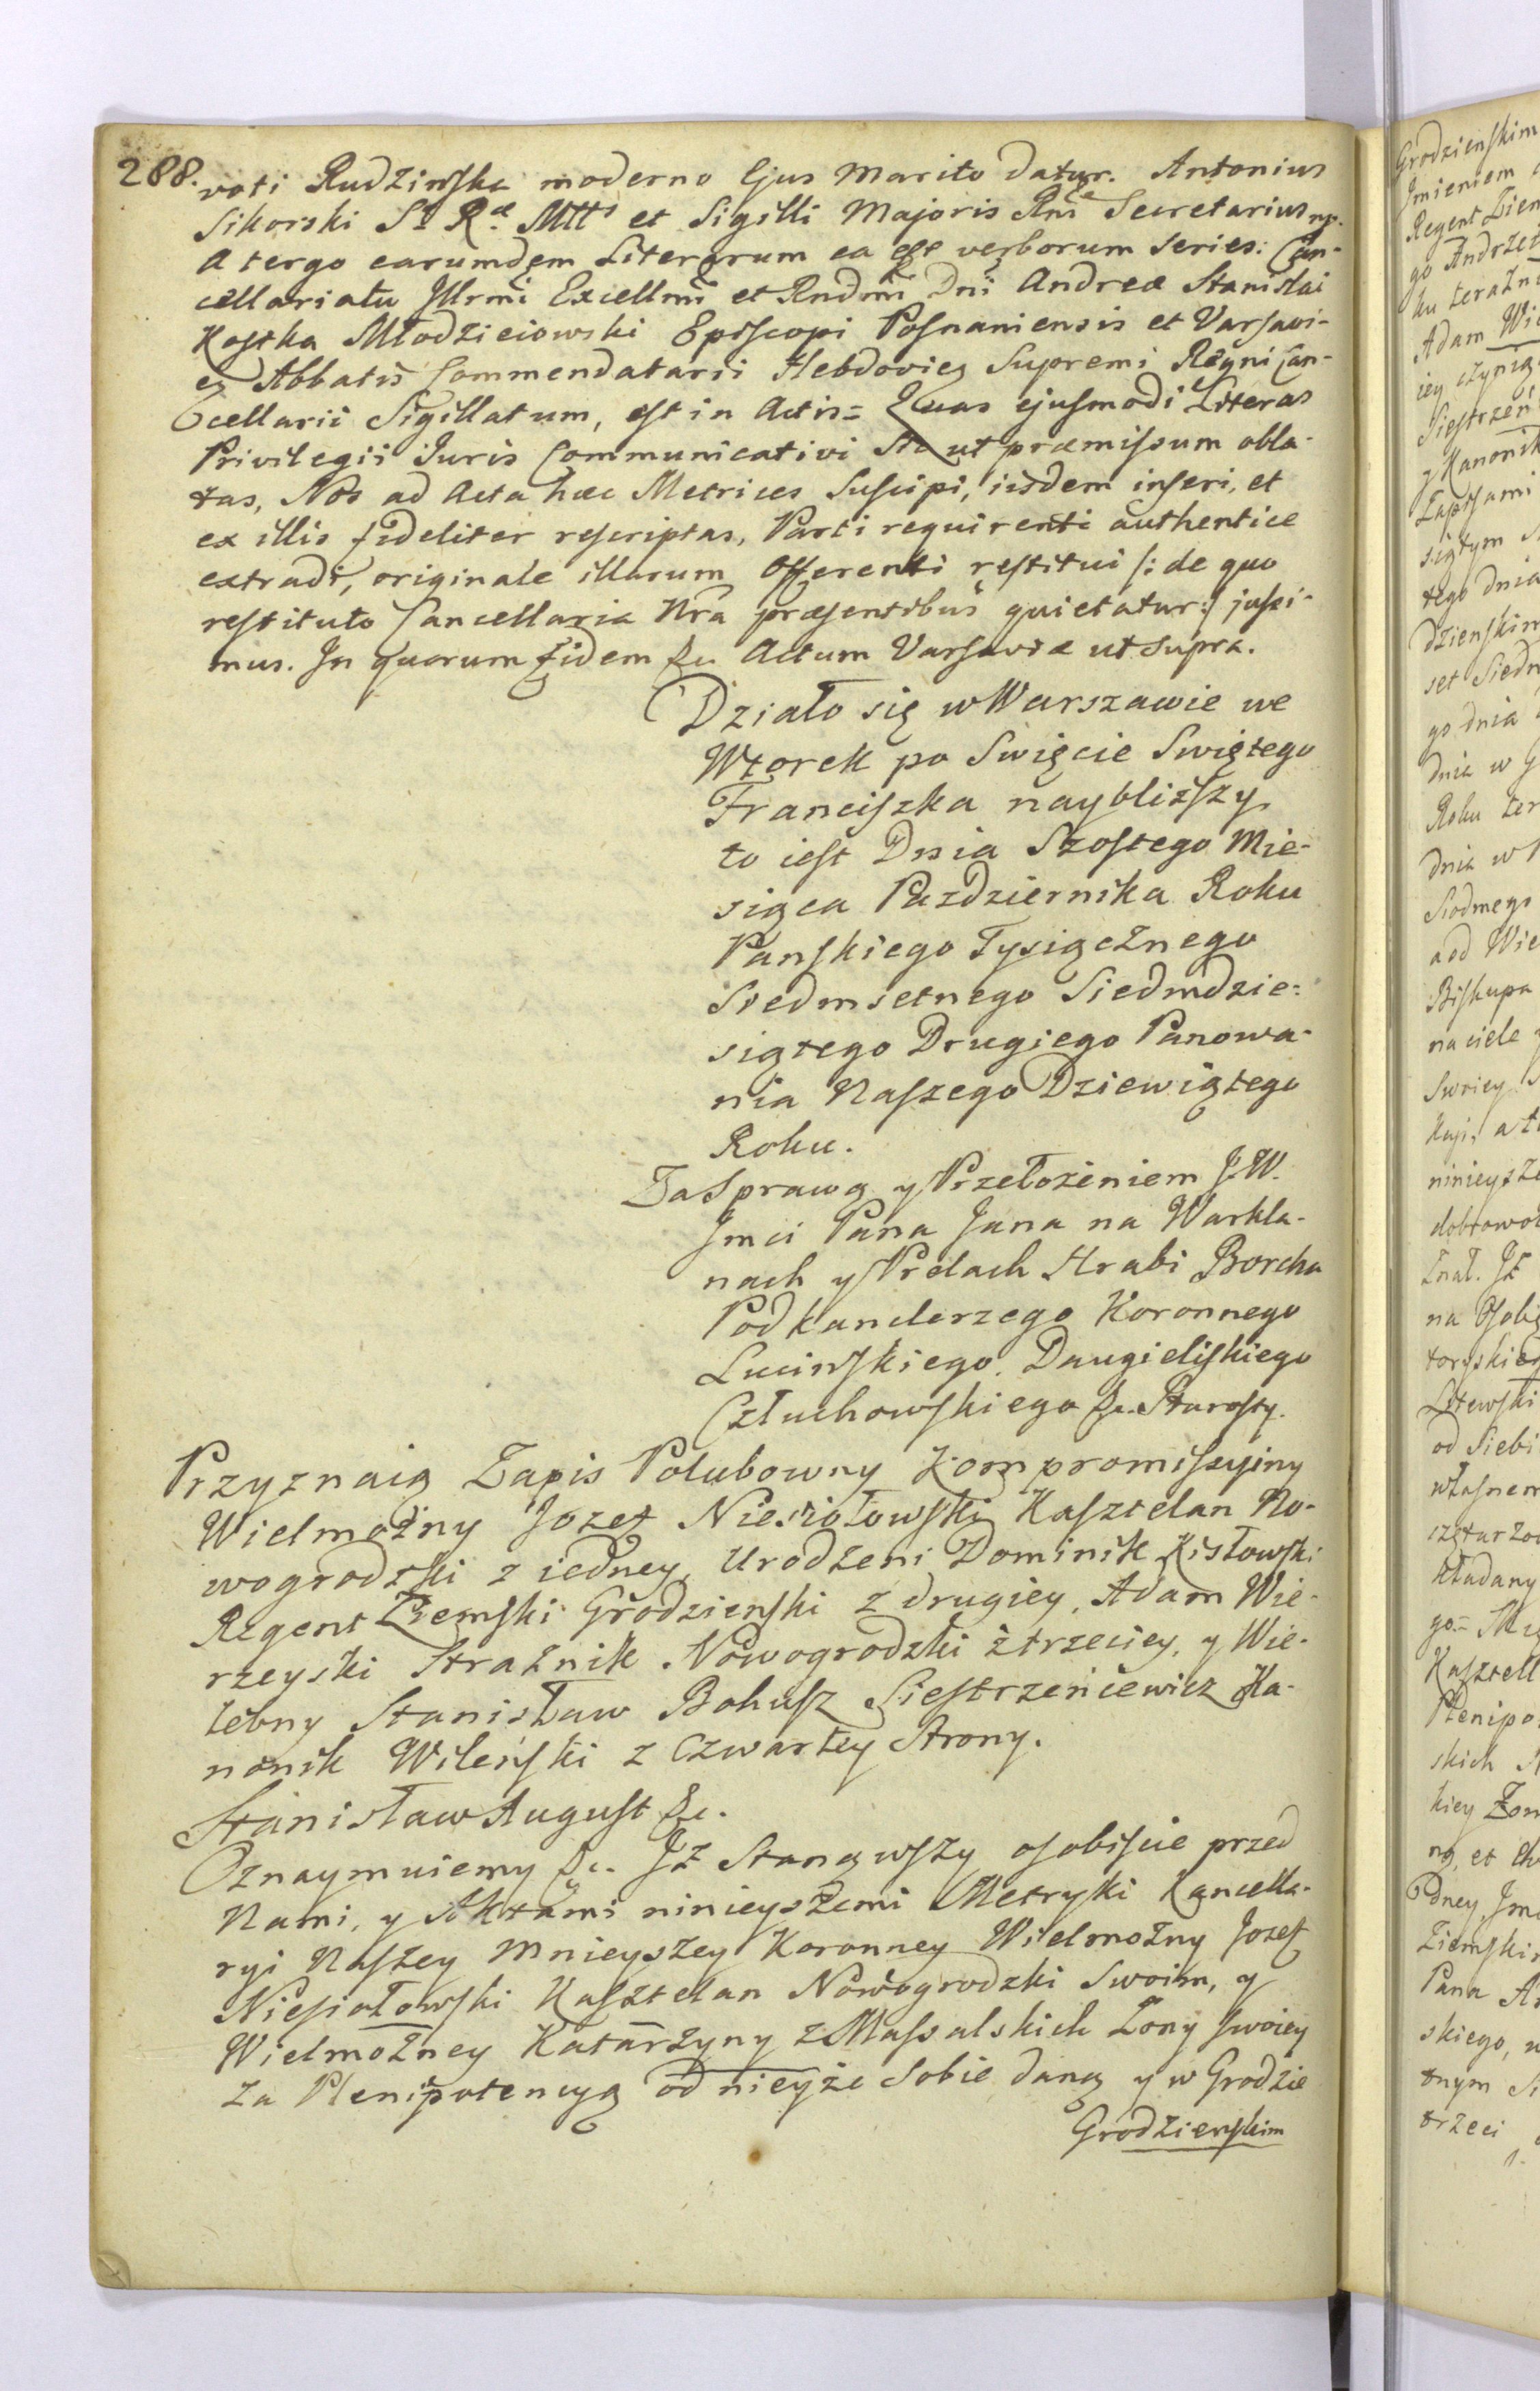 288. voti Rudzinska moderno Ejus Marito datur. Antonius
Sikorski S. Rꝏ. Mttis et Sigilli Majoris Rni Secretarius mp.
A tergo earumdem Literarum ea est verborum series: Can-
cellariatu Illrmi Excellmi et Rndmi Dni Andreæ Stanislai
Kostka Młodzieiowski Episcopi Posnaniensis et Varsavi-
Abbatis Commendatarii Hebdovien Supremi Regni Can-
cellarii Sigillatum, est in Actis= Quas ejusmodi Literas
Privilegii Juris Communicativi ut præmissum obla-
tas, Nos ad Acta hæc Metrices Suscipi, iisdem inseri, et
ex illis fideliter rescriptas, Parti requirenti authentice
extradi, originale illarum Offerenti restitui /: de quo
restituto Cancellaria Nra præsentibus quietatur :/ jussi-
mus. In quorum Fidem &c. Actum Varsaviæ ut supra.
Działo się w Warszawie we
Wtorek po Swięcie Swiętego
Franciszka naybliższy
to iest Dnia Szostego Mie-
siąca Pazdziernika Roku
Panskiego Tysiącznego
Siedmsetnego Siedmdzie-
siątego Drugiego Panowa-
nia Naszego Dziewiątego
Roku.
Za Sprawą y Przełożeniem J.W.
Jmci Pana Jana na Warkla-
nach y Prelach Hrabi Borcha
Podkanclerzego Koronnego
Lucinskiego, Daugieliskiego
Człuchowskiego &c. Starosty.
Przyznaią Zapis Polubowny Kompromissyiny
Wielmożny Jozef Niesiołowski Kasztelan No-
wogrodzki z iedney, Urodzeni Dominik Kisłowski
Regent Ziemski Grodzienski z drugiey, Adam Wie-
rzeyski Strażnik Nowogrodzki z trzeciey, y Wie-
lebny Stanisław Bohusz Siestrzeńcewicz Ka-
nonik Wileński z Czwartey Strony.
Stanisław August &c.
Oznaymuiemy &c. Iż Stanąwszy osobiscie przed
Nami, y Aktami ninieyszemi Metryki Kancella-
ryi Naszey Mnieyszey Koronney Wielmożny Jozef
Niesiołowski Kasztelan Nowogrodzki Swoim, y
Wielmożney Katarzyny z Massalskich Zony swoiey
za Plenipotencyą od nieyże Sobie daną y w Grodzie
Grodzienskim
Grodzienskim
Jmieniem
Regent Ziem
go Andrzei
ku terazni
Adam Wie
iey czynią
Siestrzeń
y Kanonik
Zapisami
siątym
tego dnia
dzienskim
set Siedm
go dnia
dnia w G
Roku ter
dnia w
Siodmego
a od Wie
Biskupa
na ciele
Swoiey
ninieysze
dobrowol
znał. Iż
na Osobę
toryskie
Litewski
od Siebi
własnem
kładany
go= 
Kasztell
Plenipo
skich
kiey Zon
ną, et
Jmc
Ziemski
Pana
skiego,
tnym
trzeci